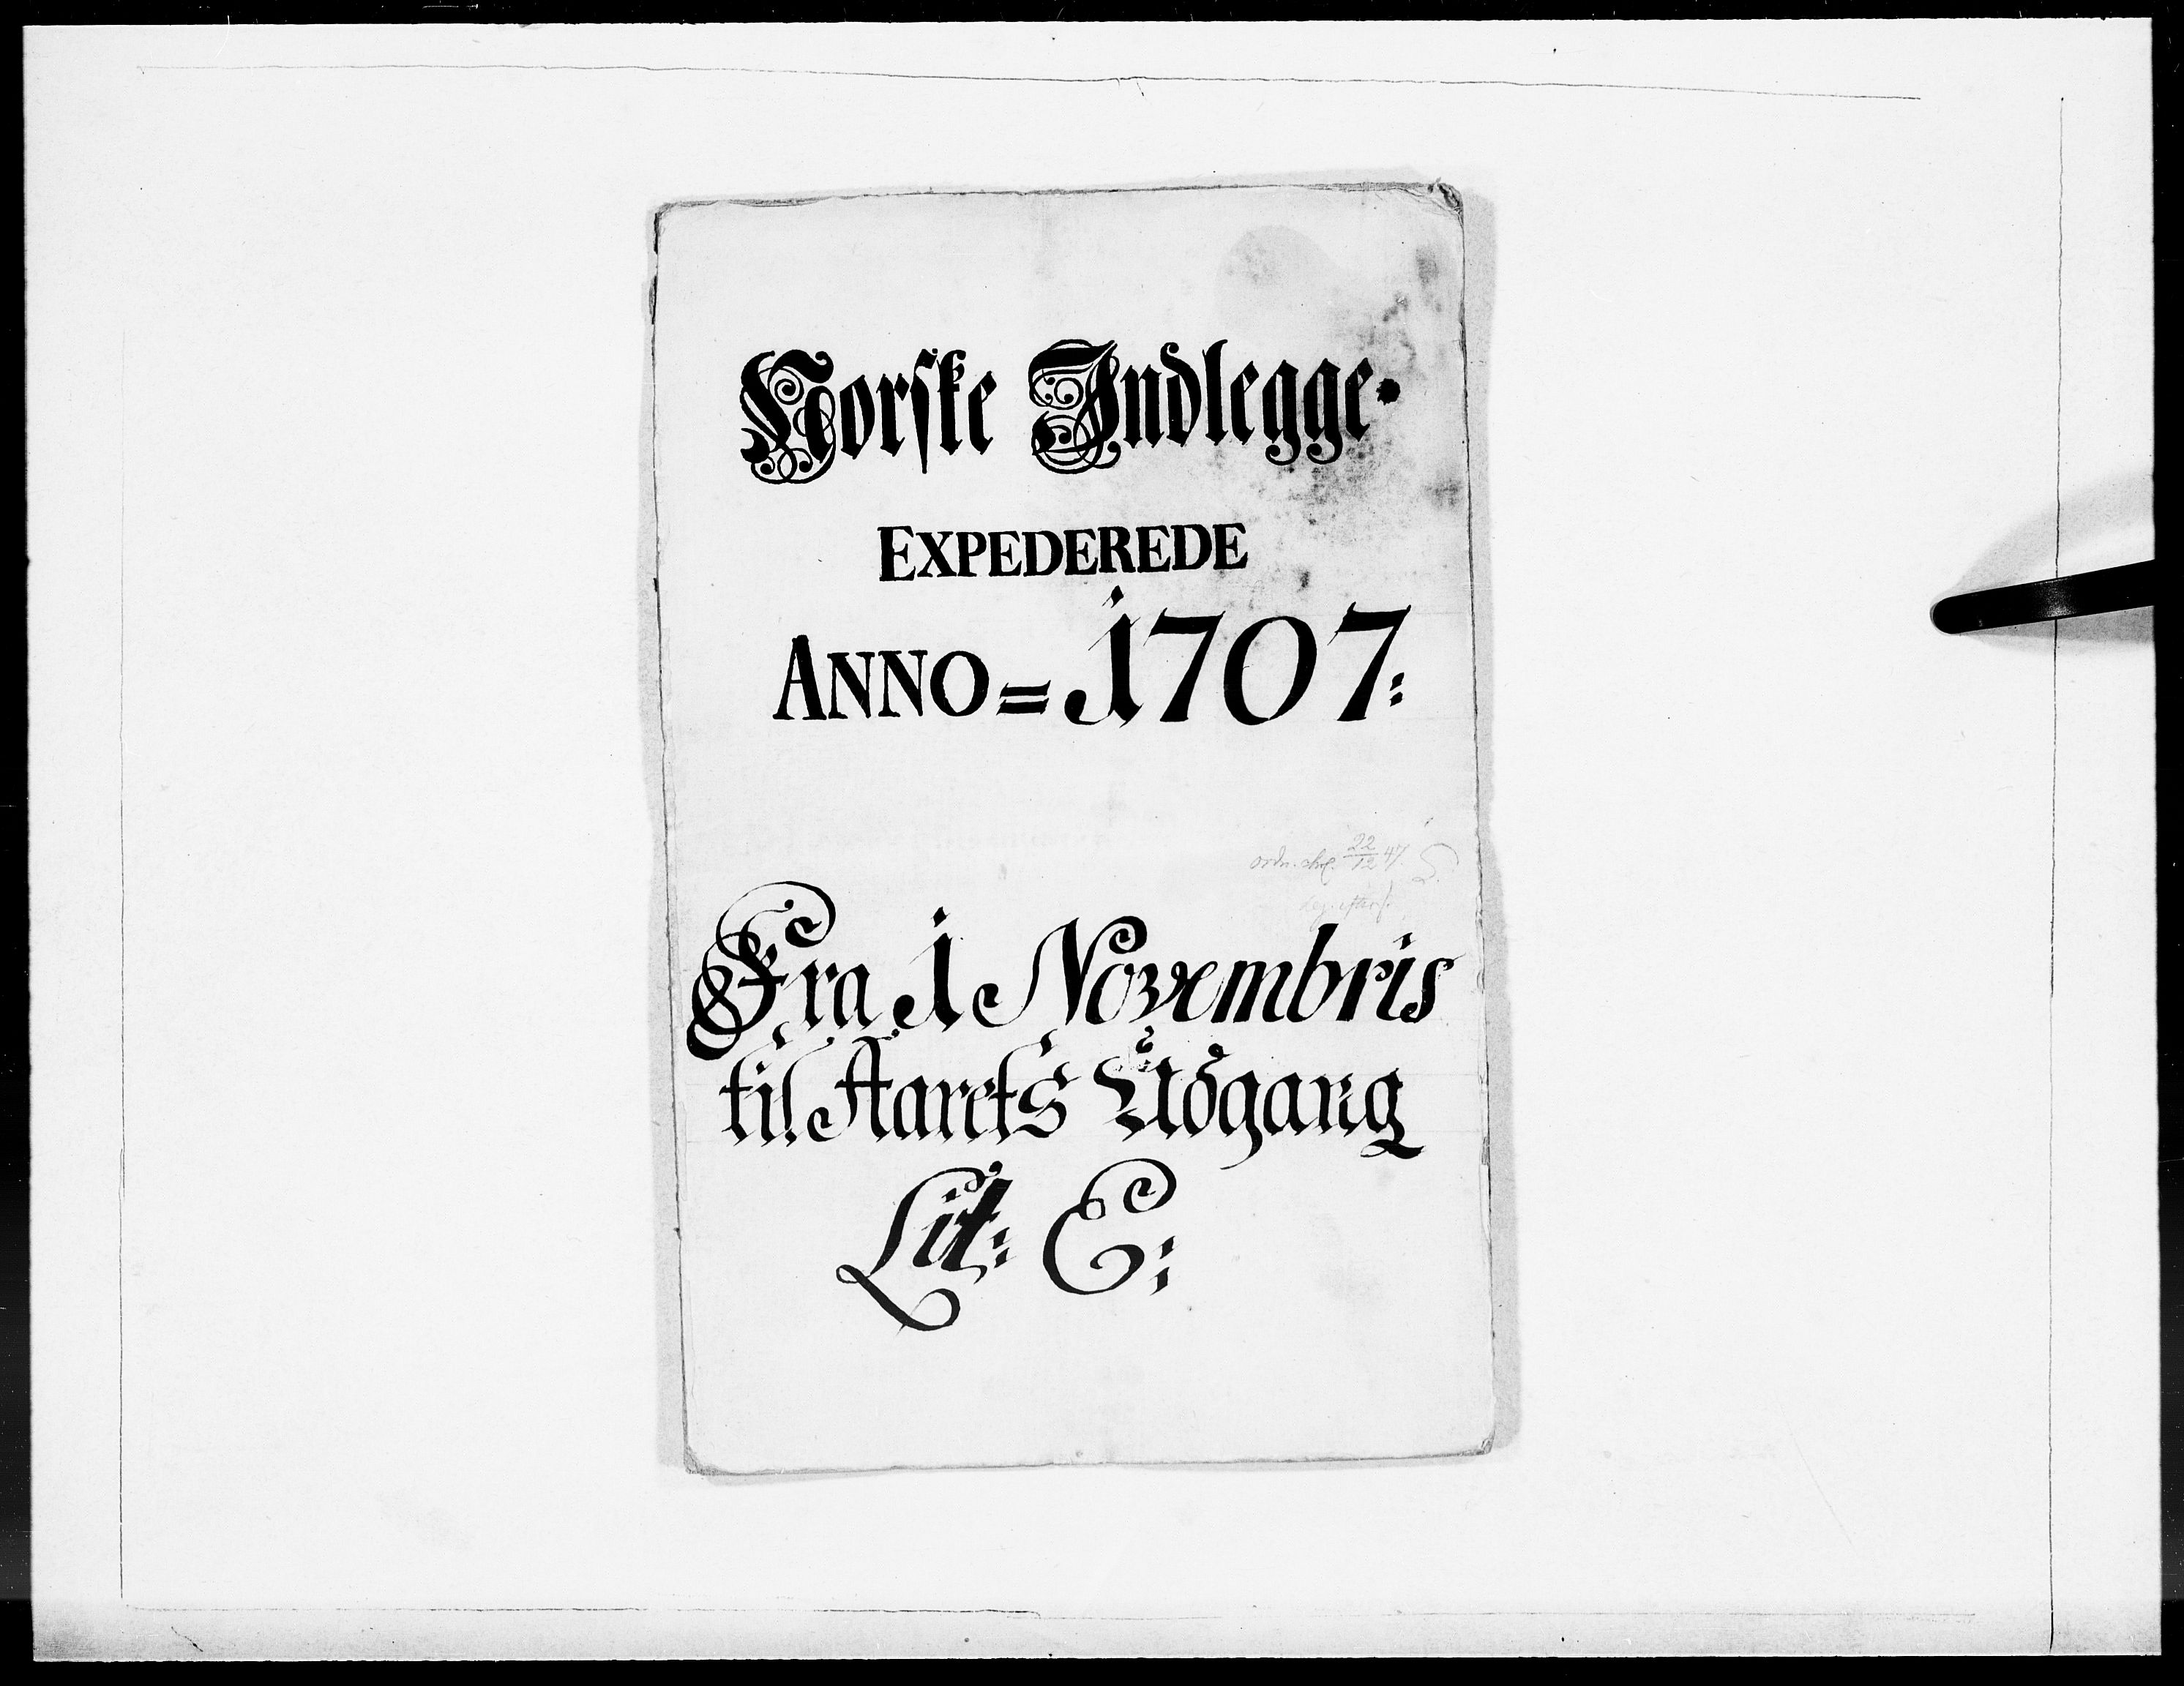 Norske Indlegge.
EXPEDEREDE
ANNO = 1707:
ordn. 22/12 47.
Fra 1 Novembris
til Aarets Udgang
Lit: E: